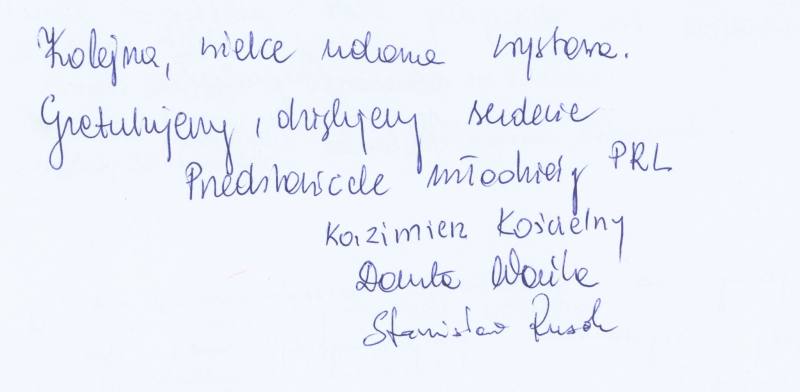 Kolejna, wielce udana wystawa.
Gratulujemy, dziękujemy serdecznie
Przedstawiciele młodzieży PRL
Kazimierz Kościelny
Danuta
Stanisław Rusok